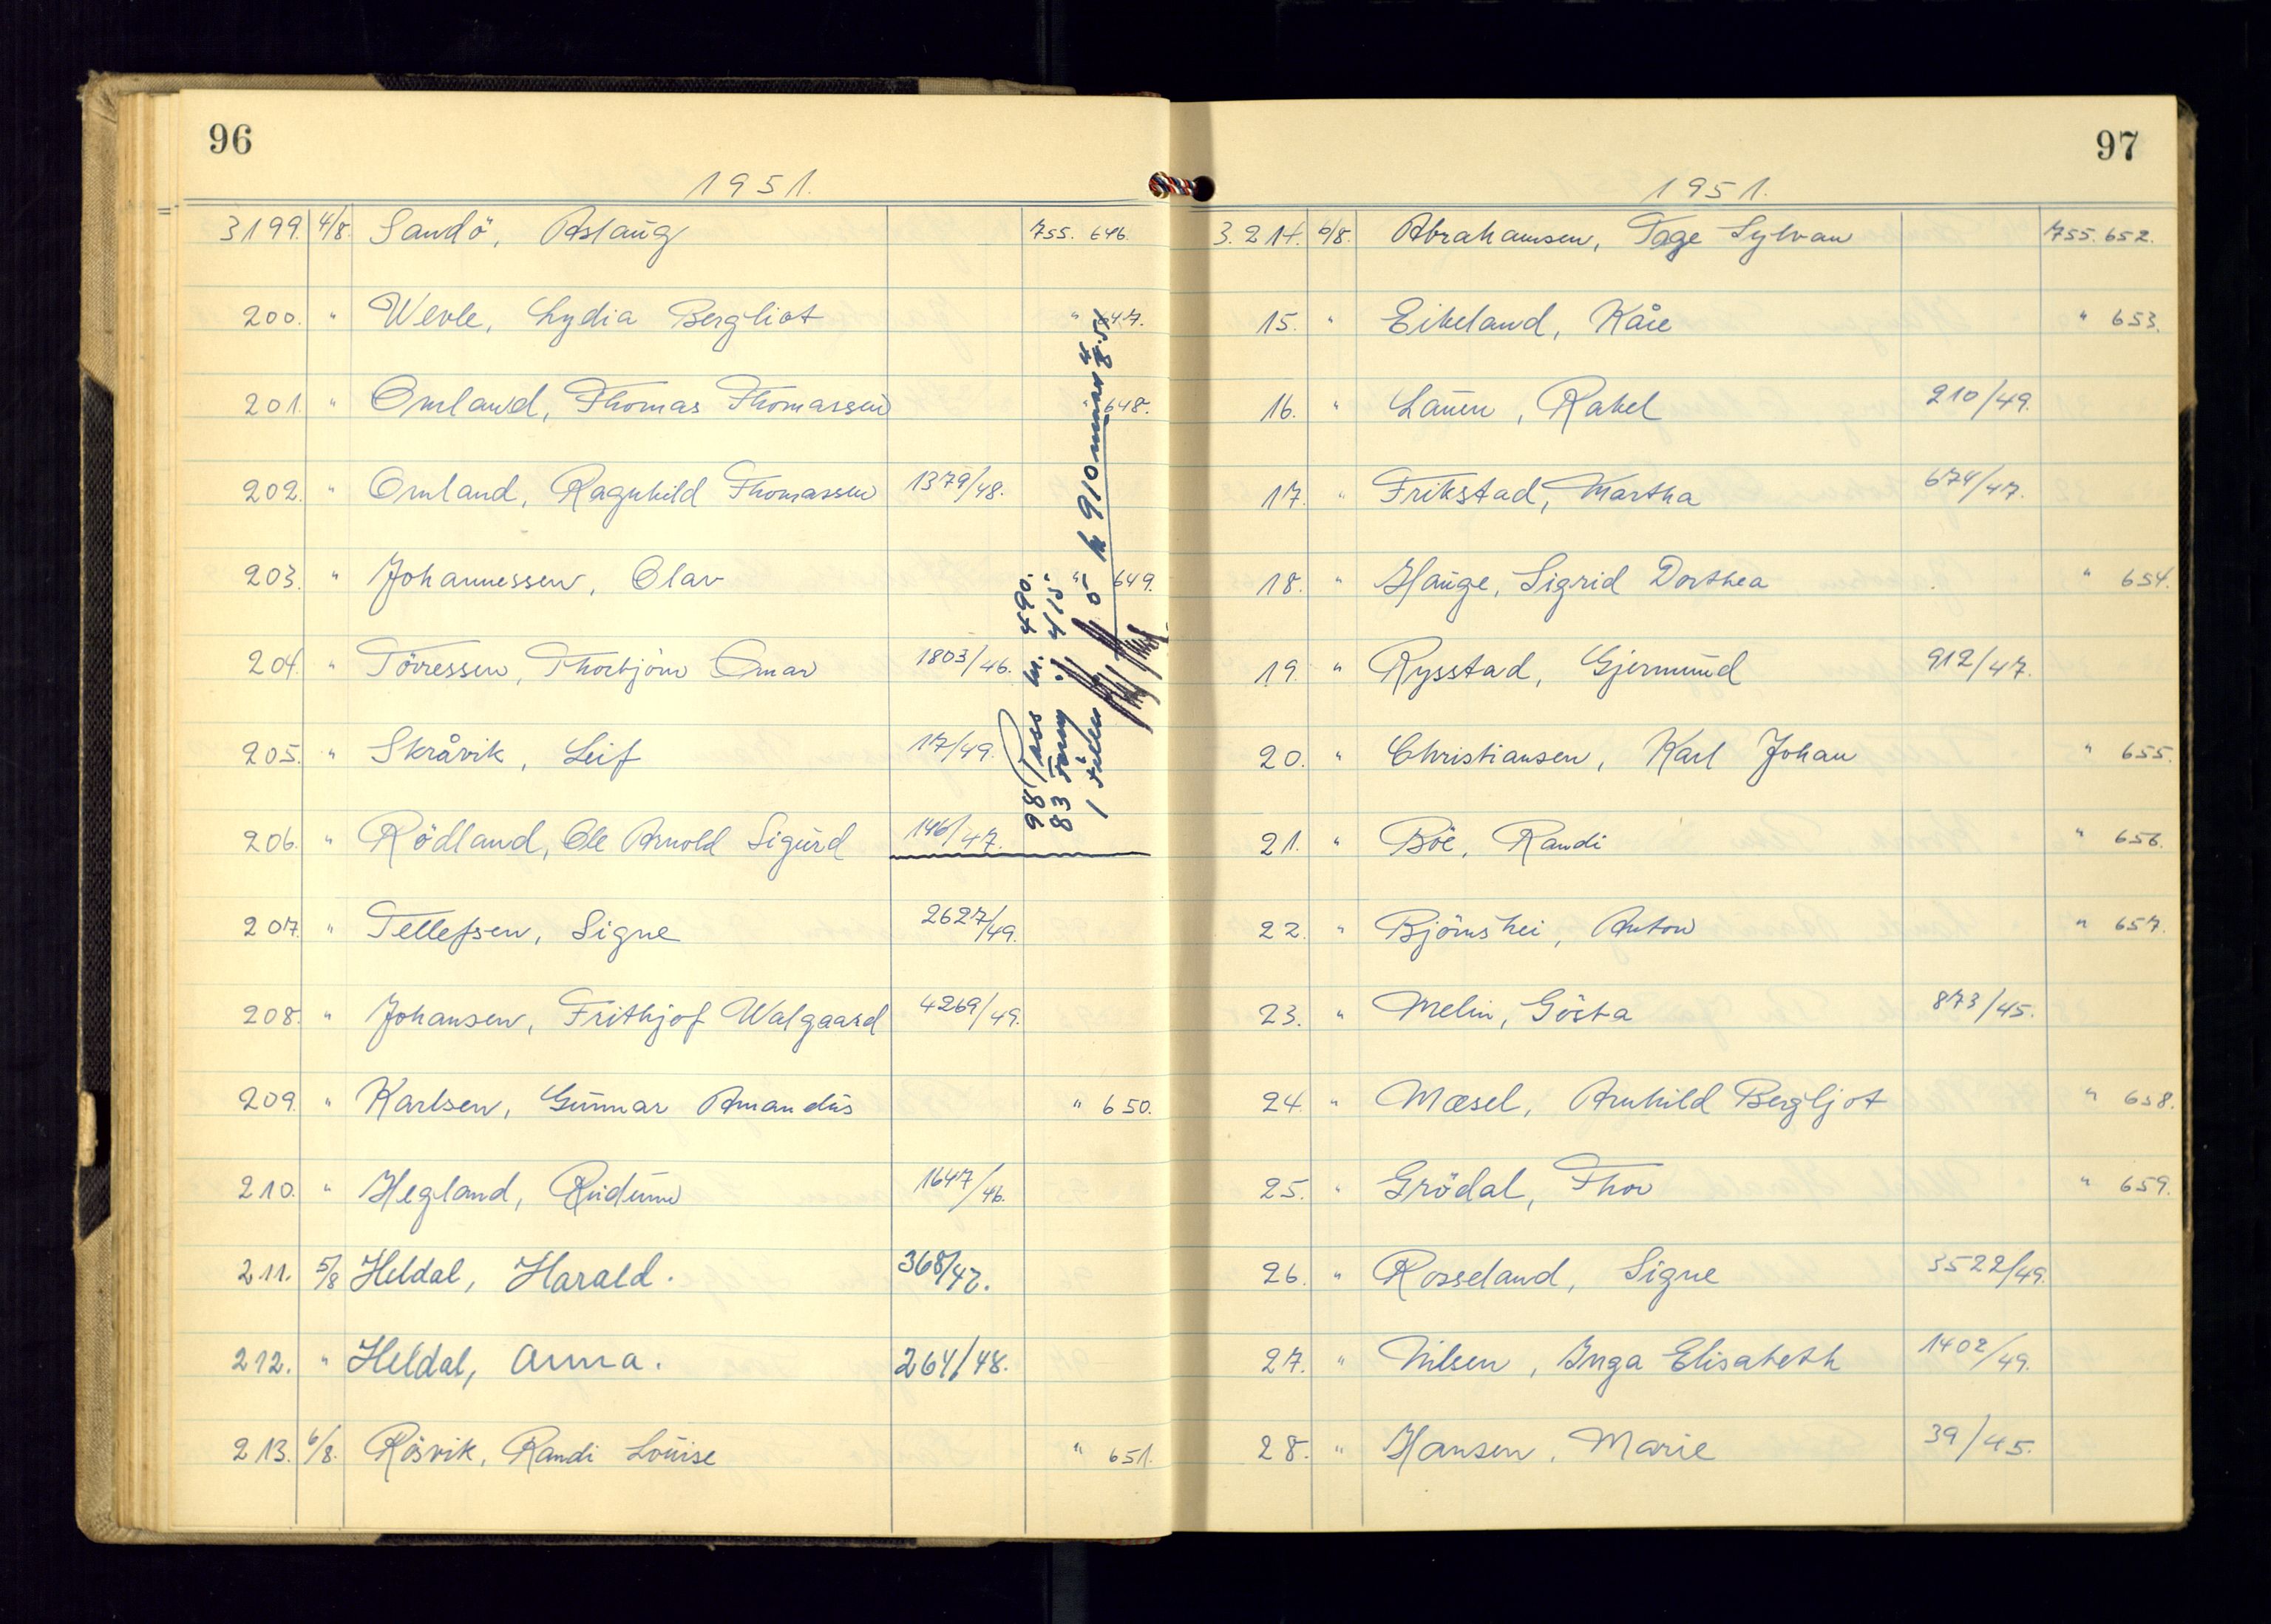 96
1951.
3199. 4/8. Sandö, Aslaug 755. 646.
200. " Wevle, Lydia Bergliot " 647.
201. " Omland, Thomas Thomassen " 648.
202. " Omland, Ragnhild Thomassen 1379/48.
203. " Johannessen, Olav " 649.
204. " Törressen, Thorbjörn Omar 1803/46.
205. " Skråvik, Leif 17/49.
206. " Rödland, Ole Arnold Sigurd 146/47.
207. " Tellefsen, Signe 2627/49.
208. " Johansen, Frithjof Walgaard 4269/49.
209. " Karlsen, Gunnar Amandus " 650.
210. " Hegland, Gudunn 1647/46.
211. 5/8 Heldal, Harald. 368/47.
212. " Heldal, Anna. 264/48.
213. 6/8. Rösvik, Randi Louise " 651.
98 Pass kr. 490.
83 Forny " 415
1 5
kr 910
97
1951.
3.214. 6/8. Abrahamsen, Tage Sylvan 755. 652.
15. " Eikeland, Kåre " 653.
16. " Lauen, Rakel 210/49.
17. " Frikstad, Martha 674/47.
18. " Hauge, Sigrid Dorthea " 654.
19. " Rysstad, Gjermund 912/47.
20. " Christiansen, Karl Johan " 655.
21. " Böe, Randi " 656.
22. " Björnshei, Anton " 657.
23. " Melin, Gösta 873/45.
24. " Mæsel, Arnhild Bergljot " 658.
25. " Grödal, Thor " 659.
26. " Rosseland, Signe 3522/49.
27. " Nilsen, Inga Elisabeth 1402/49.
28. " Hansen, Marie 39/45.